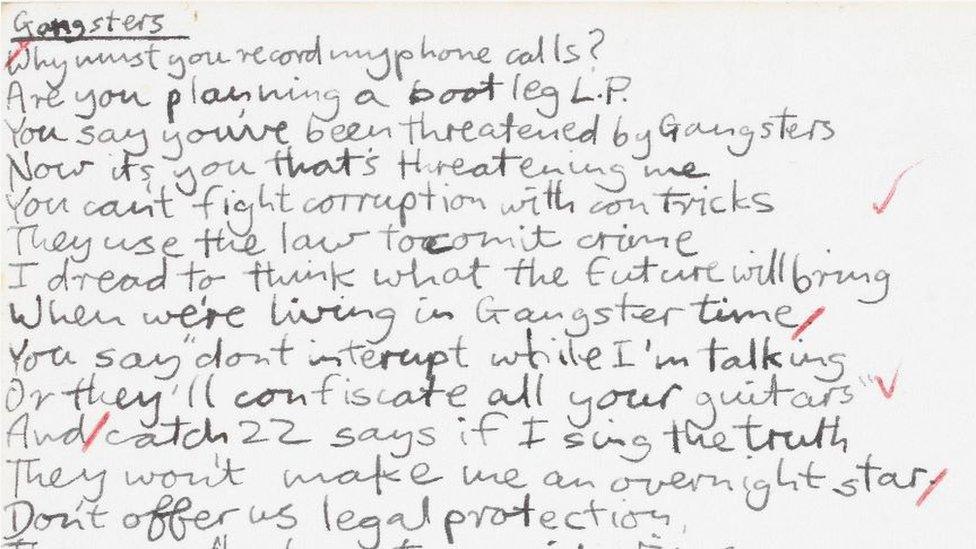 Gangsters
Why must you record my phone calls?
Are you planning a bootleg L.P.
You say you've been threatened by Gangsters
Now it's you that's threatening me
You can't fight corruption with con tricks
They use the law to comit crime
I dread to think what the future will bring
When we're living in Gangster time
You say "dont interupt while I'm talking
Or they'll confiscate all your guitars"
And catch 22 says if I sing the truth
They won't make me an overnight star.
Don't offer us legal protection,